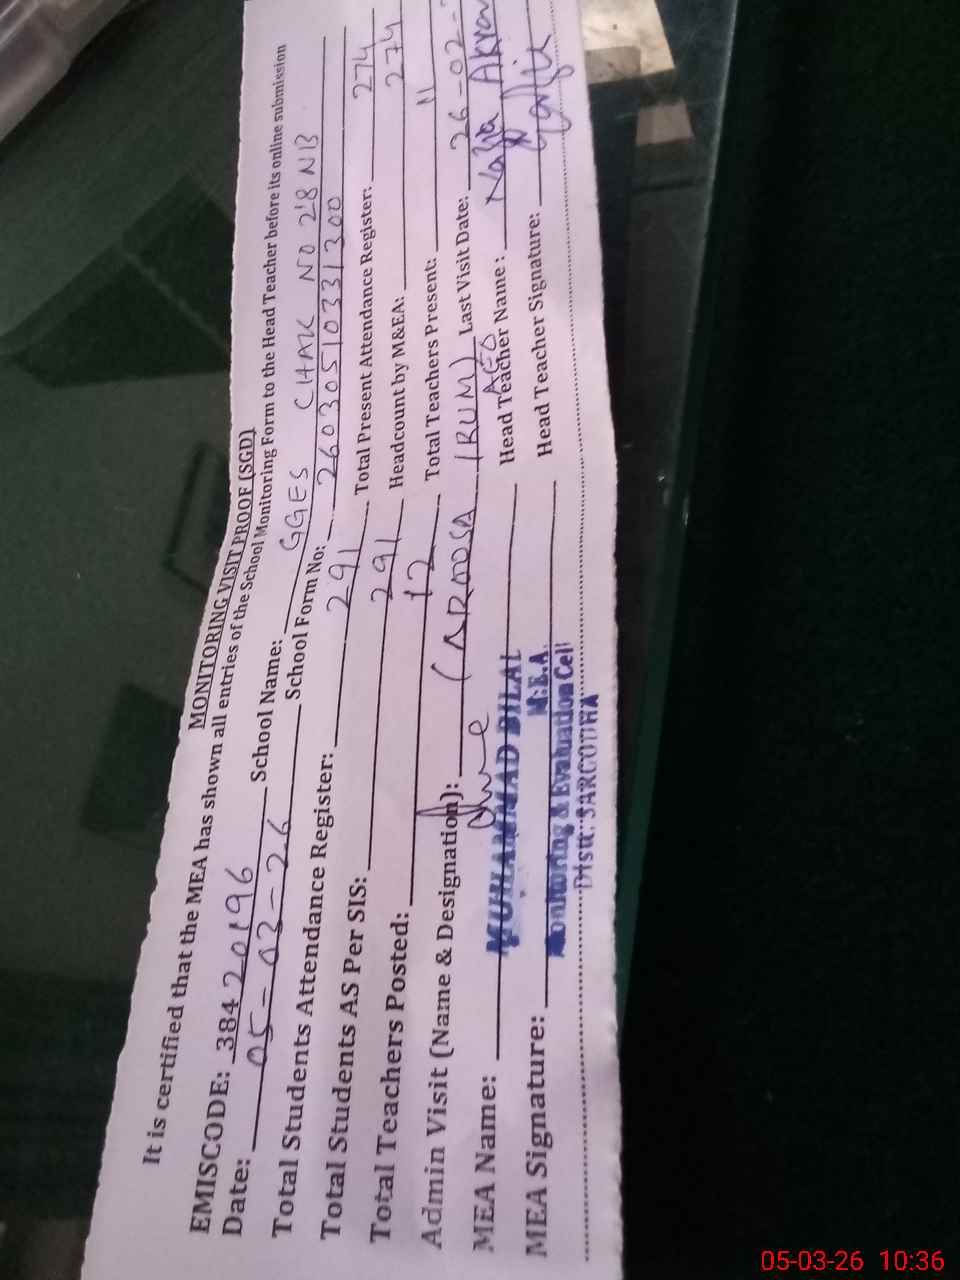 MONITORING VISIT PROOF (SGD)
It is certified that the MEA has shown all entries of the School Monitoring Form to the Head Teacher before its online submission
EMISCODE: 38420196 School Name: GGES CHAK NO 28 NB
Date: 05-03-26 School Form No: 26030510331300
Total Students Attendance Register: 291 Total Present Attendance Register: 274
Total Students AS Per SIS: 291 Headcount by M&EA: 274
Total Teachers Posted: 12 Total Teachers Present: 11
Admin Visit (Name & Designation): (AROOSA IRUM) AEO Last Visit Date: 26-02-
MEA Name: MUHAMMAD BILAL Head Teacher Name: Nazia Akram
M.E.A
MEA Signature: Monitoring & Evaluation Cell Head Teacher Signature:
Distt: SARGODHA
05-03-26 10:36